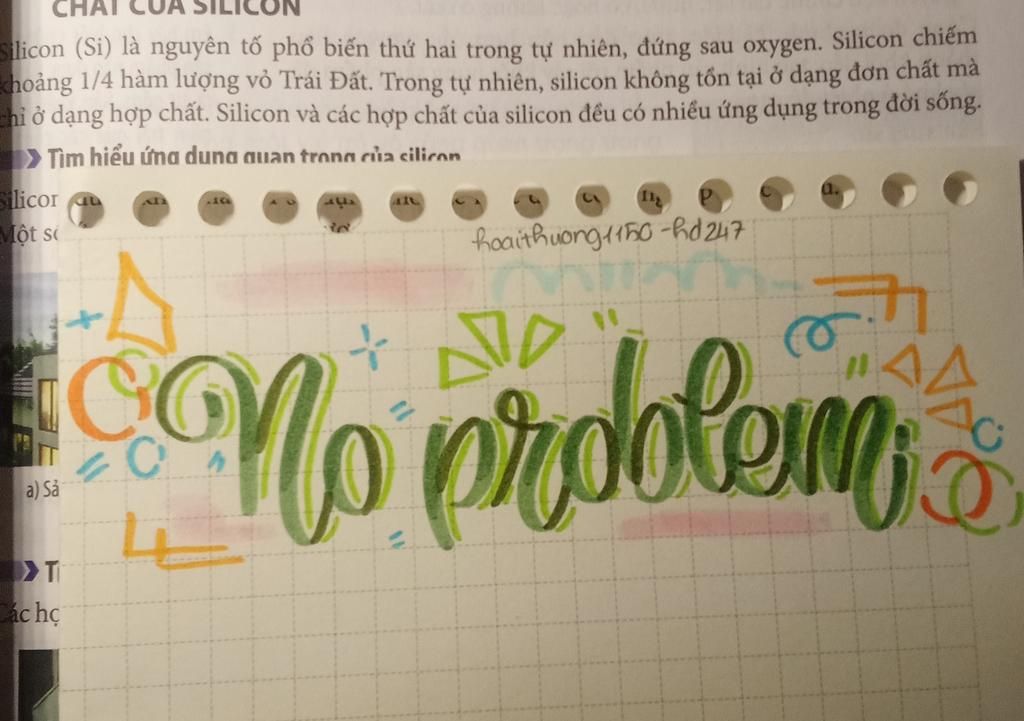 CHẤT CỦA SILICON
Silicon (Si) là nguyên tố phổ biến thứ hai trong tự nhiên, đứng sau oxygen. Silicon chiếm
khoảng 1/4 hàm lượng vỏ Trái Đất. Trong tự nhiên, silicon không tồn tại ở dạng đơn chất mà
chỉ ở dạng hợp chất. Silicon và các hợp chất của silicon đều có nhiều ứng dụng trong đời sống.
Tìm hiểu ứng dụng quan trọng của silicon
Silicon
Một số
hoaithuong1150-hd247
No problem
a) Sả
Các hợ